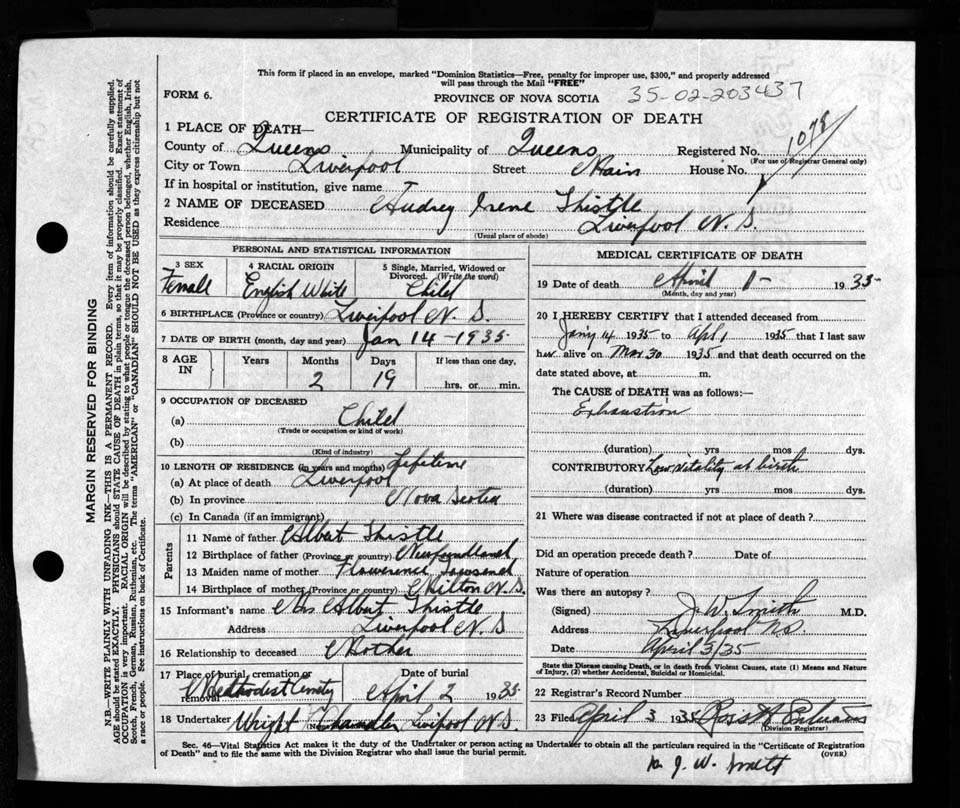 This form if placed in an envelope, marked "Dominion Statistics—Free, penalty for improper use, $300," and properly addressed
will pass through the Mail "FREE"
FORM 6.
PROVINCE OF NOVA SCOTIA
35-02-203437
CERTIFICATE OF REGISTRATION OF DEATH
1 PLACE OF DEATH—
County of Queens Municipality of Queens Registered No. 1078
(For use of Registrar General only)
City or Town Liverpool Street Main House No.
If in hospital or institution, give name
2 NAME OF DECEASED Audrey Irene Thistle
Residence Liverpool N. S.
(Usual place of abode)
PERSONAL AND STATISTICAL INFORMATION
3 SEX 4 RACIAL ORIGIN 5 Single, Married, Widowed or
Divorced. (Write the word)
Female English White Child
6 BIRTHPLACE (Province or country) Liverpool N. S.
7 DATE OF BIRTH (month, day and year) Jan 14 - 1935
8 AGE IN Years Months Days If less than one day,
2 19 hrs. or min.
9 OCCUPATION OF DECEASED
(a) Child
(Trade or occupation or kind of work)
(b)
(Kind of industry)
10 LENGTH OF RESIDENCE (in years and months) Lifetime
(a) At place of death Liverpool
(b) In province Nova Scotia
(c) In Canada (if an immigrant)
Parents
11 Name of father Albert Thistle
12 Birthplace of father (Province or country) Newfoundland
13 Maiden name of mother Flowerence Townsend
14 Birthplace of mother (Province or country) Milton N. S.
15 Informant's name Mrs Albert Thistle
Address Liverpool N. S
16 Relationship to deceased Mother
17 Place of burial, cremation or removal Date of burial
Methodist Cmty April 2 1935
18 Undertaker Wright Chandler Liverpool N. S.
MEDICAL CERTIFICATE OF DEATH
19 Date of death April 1 - 1935
(Month, day and year)
20 I HEREBY CERTIFY that I attended deceased from
Jany 14 1935 to Apl 1 1935 that I last saw
her alive on Mar 30 1935 and that death occurred on the
date stated above, at m.
The CAUSE OF DEATH was as follows:—
Exhaustion
(duration) yrs mos dys.
CONTRIBUTORY Low vitality at birth
(duration) yrs mos dys.
21 Where was disease contracted if not at place of death?
Did an operation precede death? Date of
Nature of operation
Was there an autopsy?
(Signed) J. W. Smith M.D.
Address Liverpool N.S.
Date April 3/35
State the Disease causing Death, or in death from Violent Causes, state (1) Means and Nature
of Injury, (2) whether Accidental, Suicidal or Homicidal.
22 Registrar's Record Number
23 Filed April 3 1935
(Division Registrar)
Sec. 46—Vital Statistics Act makes it the duty of the Undertaker or person acting as Undertaker to obtain all the particulars required in the "Certificate of Registration
of Death" and to file the same with the Division Registrar who shall issue the burial permit.
(OVER)
J. W. Smith
MARGIN RESERVED FOR BINDING
N.B.—WRITE PLAINLY WITH UNFADING INK—THIS IS A PERMANENT RECORD. Every item of information should be carefully supplied.
AGE should be stated EXACTLY. PHYSICIANS should STATE CAUSE OF DEATH in plain terms, so that it may be properly classified. Exact statement of
OCCUPATION is very important. RACIAL ORIGIN will be described by stating to what people or tongue the deceased person belonged, whether English, Irish,
Scotch, French, German, Russian, Ruthenian, etc. The terms "AMERICAN" or "CANADIAN" SHOULD NOT BE USED as they express citizenship but not
a race or people. See instructions on back of Certificate.